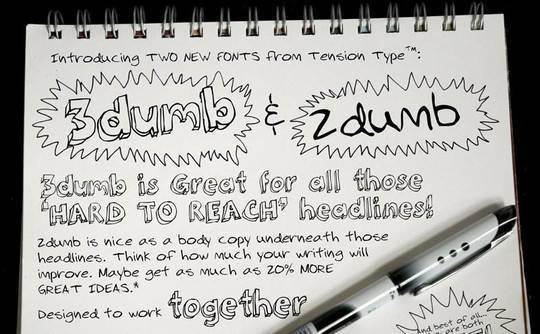 Introducing TWO NEW FONTS from Tension Type™:
3dumb & 2dumb
3dumb is Great for all those
'HARD TO REACH' headlines!
2dumb is nice as a body copy underneath those
headlines. Think of how much your writing will
improve. Maybe get as much as 20% MORE
GREAT IDEAS.*
Designed to work together
and best of all...
are both